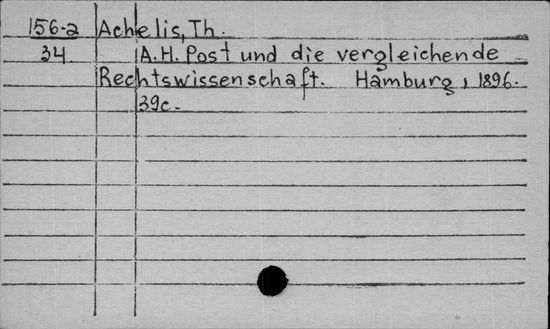 156-2 Achelis, Th.
34 A. H. Post und die vergleichende
Rechtswissenschaft. Hamburg, 1896.
39c.